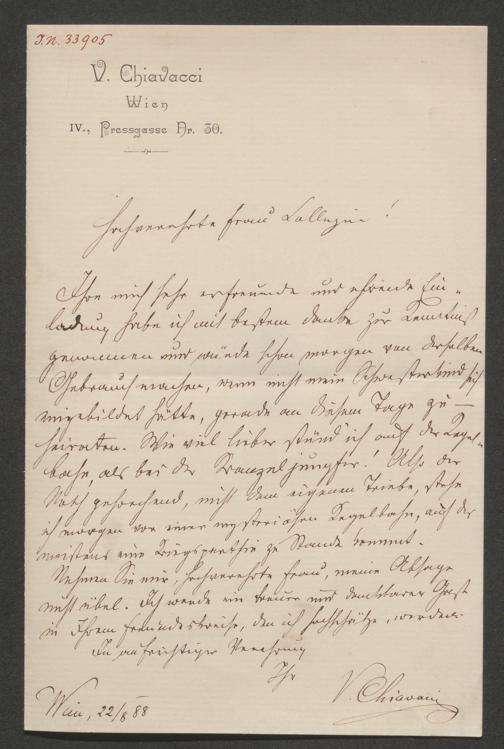 I.N. 33905
V. Chiavacci
Wien
IV., Pressgasse Nr. 30.
Hochverehrte Frau Collegin!
Ihre mich sehr erfreuende und ehrende Ein-
ladung habe ich mit bestem Danke zur Kenntniß
genommen und würde schon morgen von derselben
Gebrauch machen, wenn nicht mein Schwesterkind sich
eingebildet hätte, gerade an diesem Tage zu
heiraten. Wie viel lieber stünd ich auf der Kegel-
bahn, als bei der Kranzeljungfer! Also der
Noth gehorchend, nicht dem eigenen Triebe, stehe
ich morgen vor einer mysteriösen Kegelbahn, auf der
meistens eine Kriegsparthie zu Stande kommt.
Nehmen Sie mir, hochverehrte Frau, meine Absage
nicht übel. Ich werde ein treuer und dankbarer Gast
in Ihrem Freundeskreise, den ich hochschätze, werden.
In aufrichtiger Verehrung
Ihr
V. Chiavacci
Wien, 22/8 88